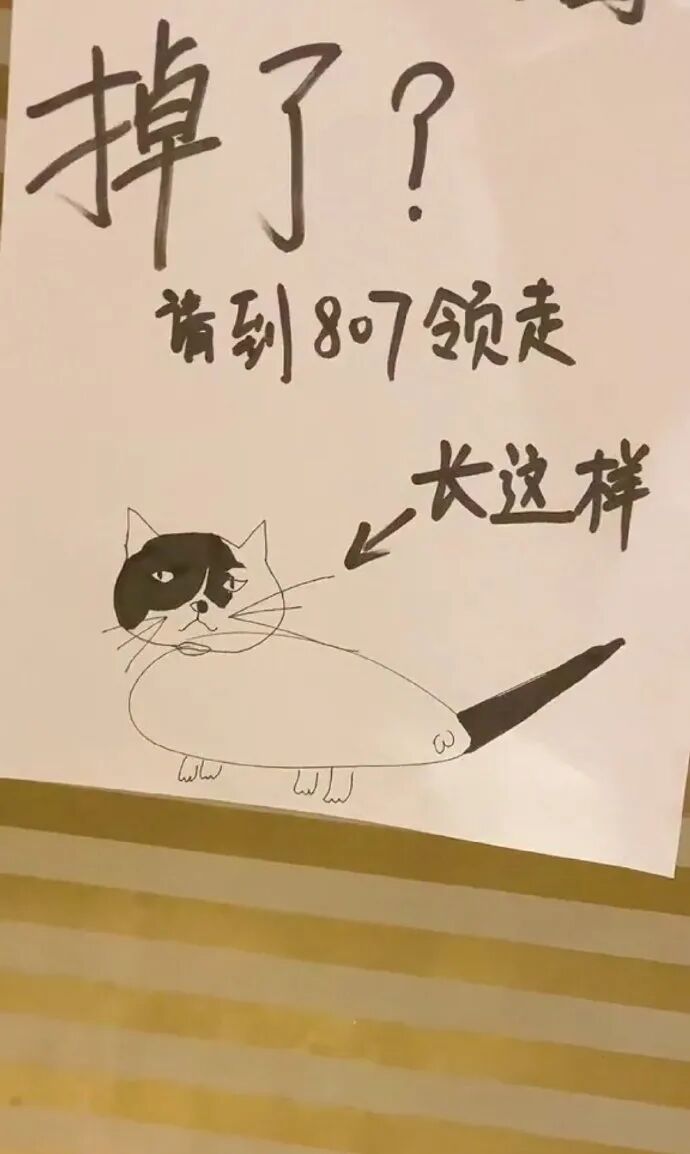 掉了?
请到807领走
长这样